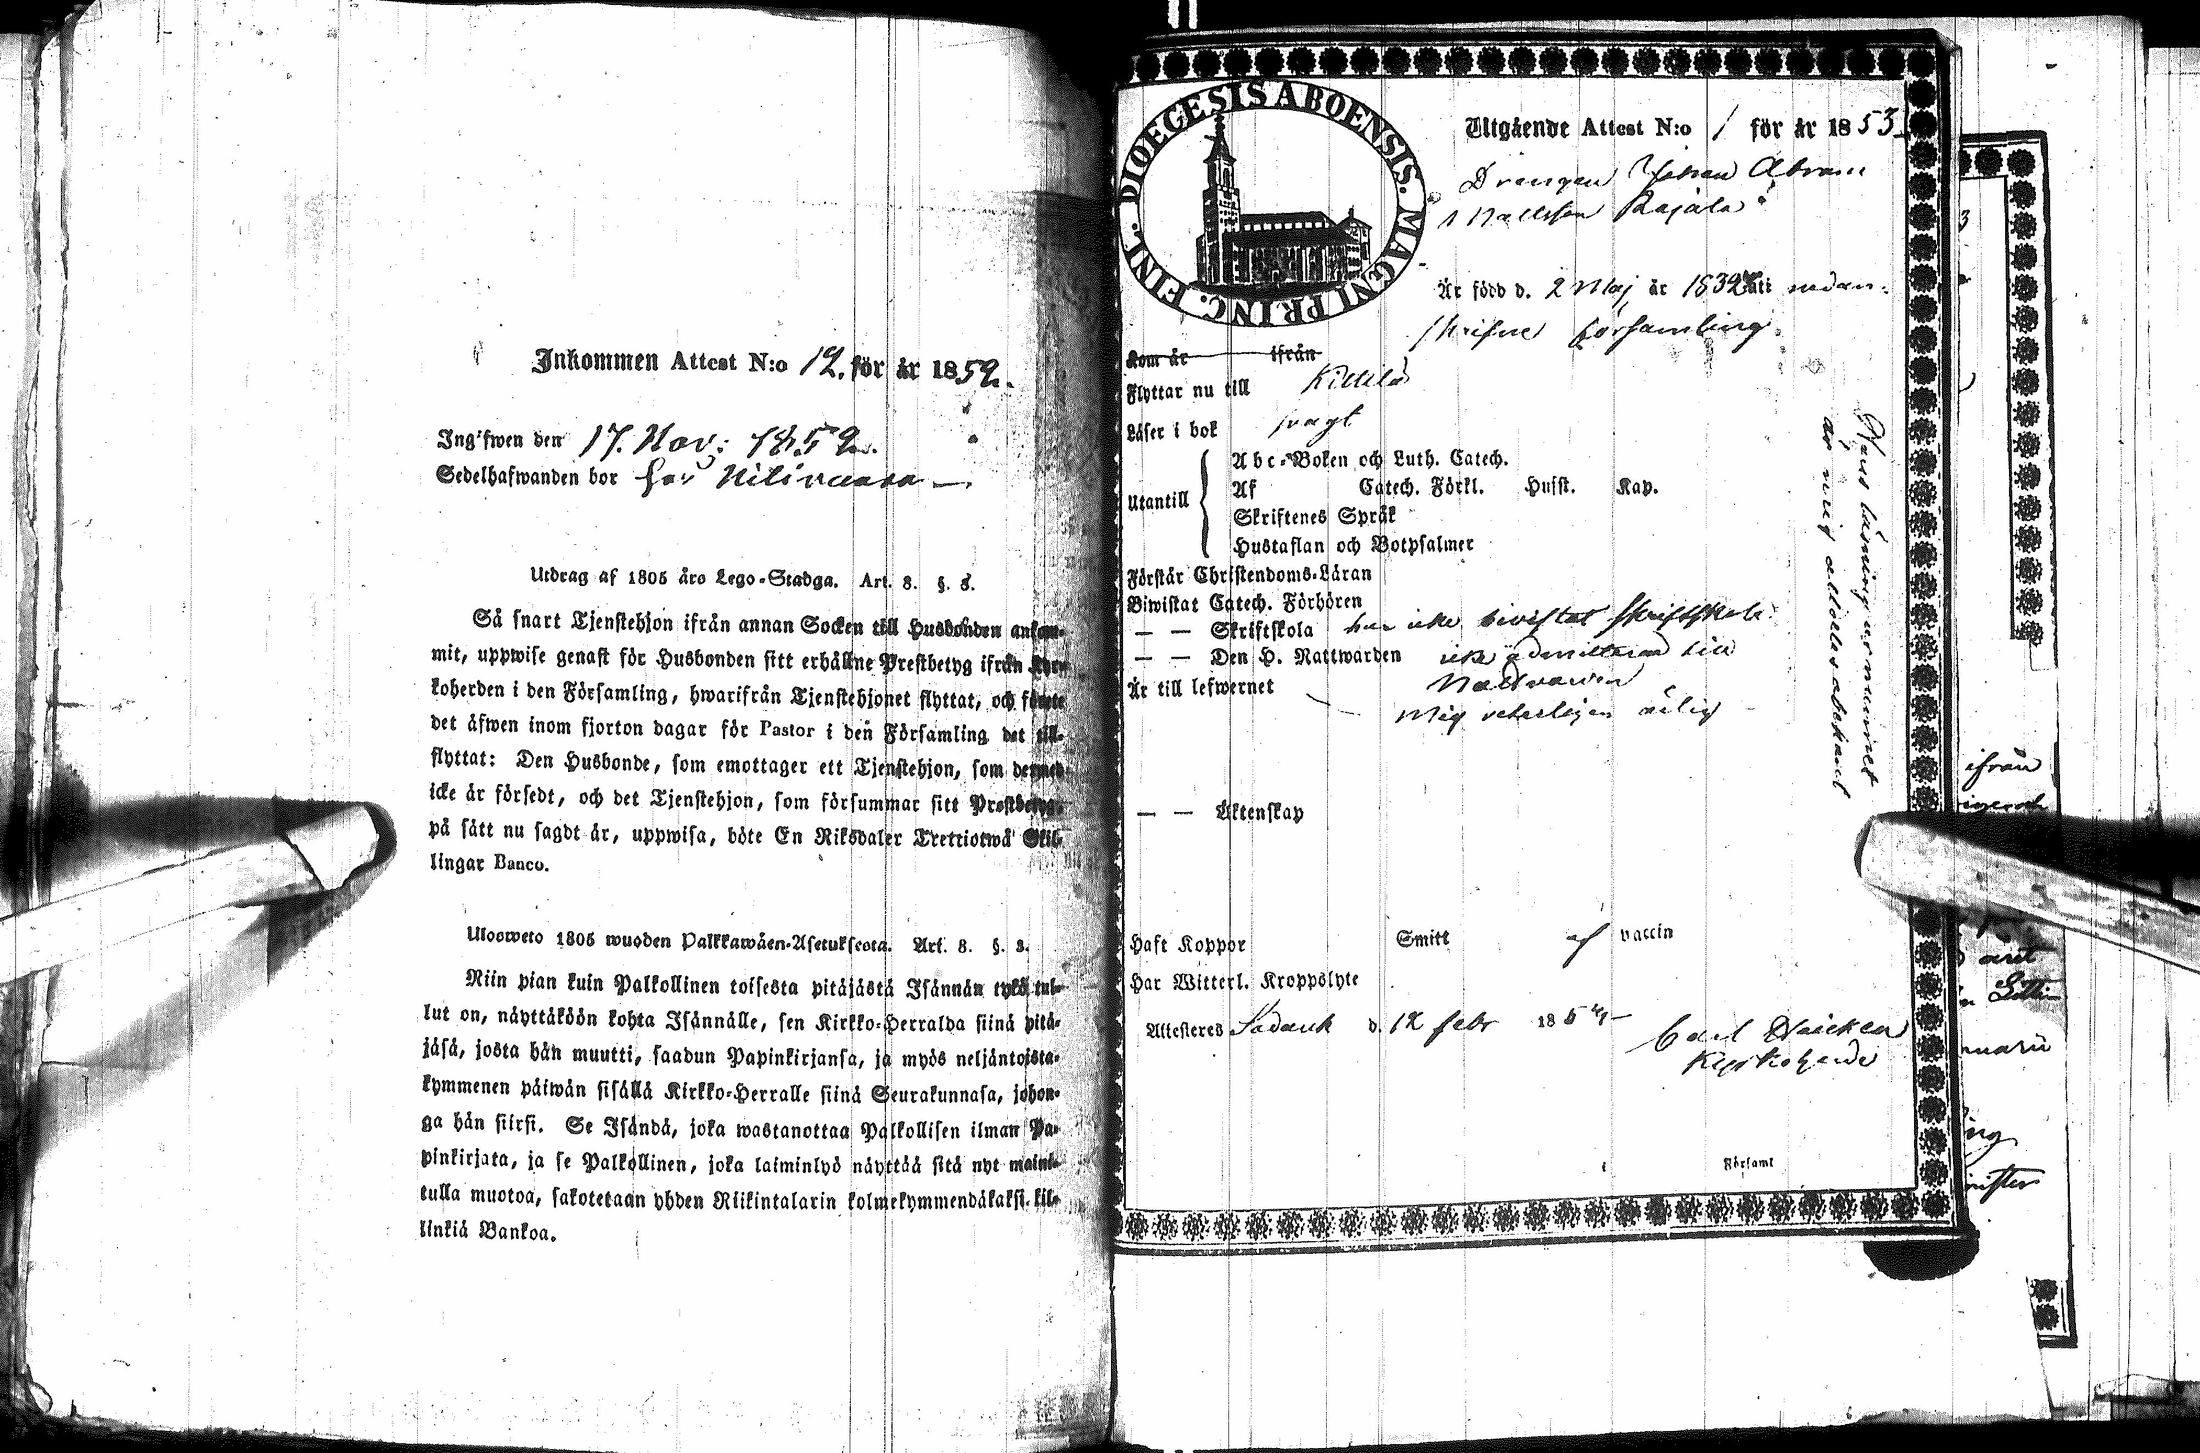 Inkommen Attest N:o 12. för år 1852.
Ing'fwen den 17. Nov: 1852.
Sedelhafwanden bor hos Niliwaara
Utdrag af 1805 års Lego-Stadga. Art. 8. §. 3.
Så snart Tjenstehjon ifrån annan Socken till Husbonden ankom-
mit, uppwise genast för Husbonden sitt erhållne Prestbetyg ifrån Kyr-
koherden i den Församling, hwarifrån Tjenstehjonet flyttat, och förete
det äfwen inom fjorton dagar för Pastor i den Församling det till-
flyttat: Den Husbonde, som emottager ett Tjenstehjon, som dermed
icke är försedt, och det Tjenstehjon, som försummar sitt Prestbetyg,
på sätt nu sagdt är, uppwisa, böte En Riksdaler Trettiotwå Skil-
lingar Banco.
Ulosweto 1805 wuoden Palkkawäen-Asetuksesta. Art. 8. §. 3.
Niin pian kuin Palkollinen toisesta pitäjästä Isännän tykö tul-
lut on, näyttäköön kohta Isännälle, sen Kirkko-Herralda siinä pitä-
jäsä, josta hän muutti, saadun Papinkirjansa, ja myös neljäntoista-
kymmenen päiwän sisällä Kirkko-Herralle siinä Seurakunnasa, johon-
ga hän siirsi. Se Isändä, joka wastanottaa Palkollisen ilman Pa-
pinkirjata, ja se Palkollinen, joka laiminlyö näyttää sitä nyt maini-
tulla muotoa, sakotetaan yhden Riikintalarin kolmekymmendäkaksi kil-
linkiä Bankoa.
DIOEGESIS ABOENSIS. MAGNI PRINC. FINL.
Utgående Attest N:o 1 för år 1853
Drengen Johan Abram
Mattsson Rajala
Är född d. 2 Maj år 1832 uti nedan-
skrifne församling
Kom år ifrån
Flyttar nu till Kittilä
Läser i bok svagt
Utantill
Abc-Boken och Luth. Catech.
Af Catech. Förkl. Husst. Kap.
Skriftenes Språk
Hustaflan och Botpsalmer
Förstår Christendoms-Läran
Biwistat Catech. Förhören
— — Skriftskola har icke bivistat Skriftskola
— — Den H. Nattwarden icke admitterad till
Nattvarden
Är till lefwernet mig veterligen ärlig
— — Äktenskap
Hans läsning utom namnet
är mig alldeles obekant
Haft Koppor Smitt af vaccin
Har Witterl. Kroppslyte
Attesteres Sodank d. 12 febr 185
Carl
Kyrkoherde
Församl
ifrån